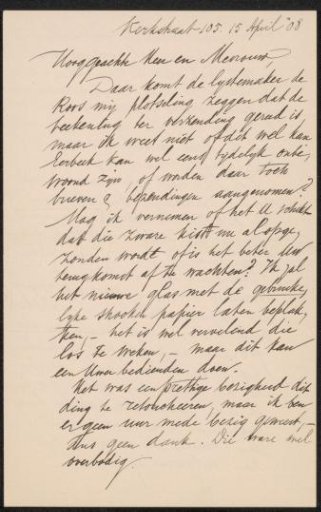 Kerkstraat 105. 15 April '08
Hooggeachte Heer en Mevrouw,
Daar komt de lystemaker de
Roos mij plotseling zeggen dat de
teekening ter verzending gereed is,
maar ik weet niet of dit wel kan
Eerbeek kan wel eens tijdelijk onbe-
woond zijn, of worden daar toch
brieven & bezendingen aangenomen?
Mag ik vernemen of het U schikt
dat die zware kist nu al opge-
zonden wordt of is het beter Uw
terugkomst af te wachten? Ik zal
het nieuwe glas met de gebruike-
lyke strooken papier laten beplak-
ken, – het is wel vervelend die
los te weken, – maar dit kan
een Uwer bedienden doen.
Het was een prettige bezigheid dit
ding te retoucheeren, maar ik ben
er geen uur mede bezig geweest, –
dus geen dank. Die ware wel
overbodig